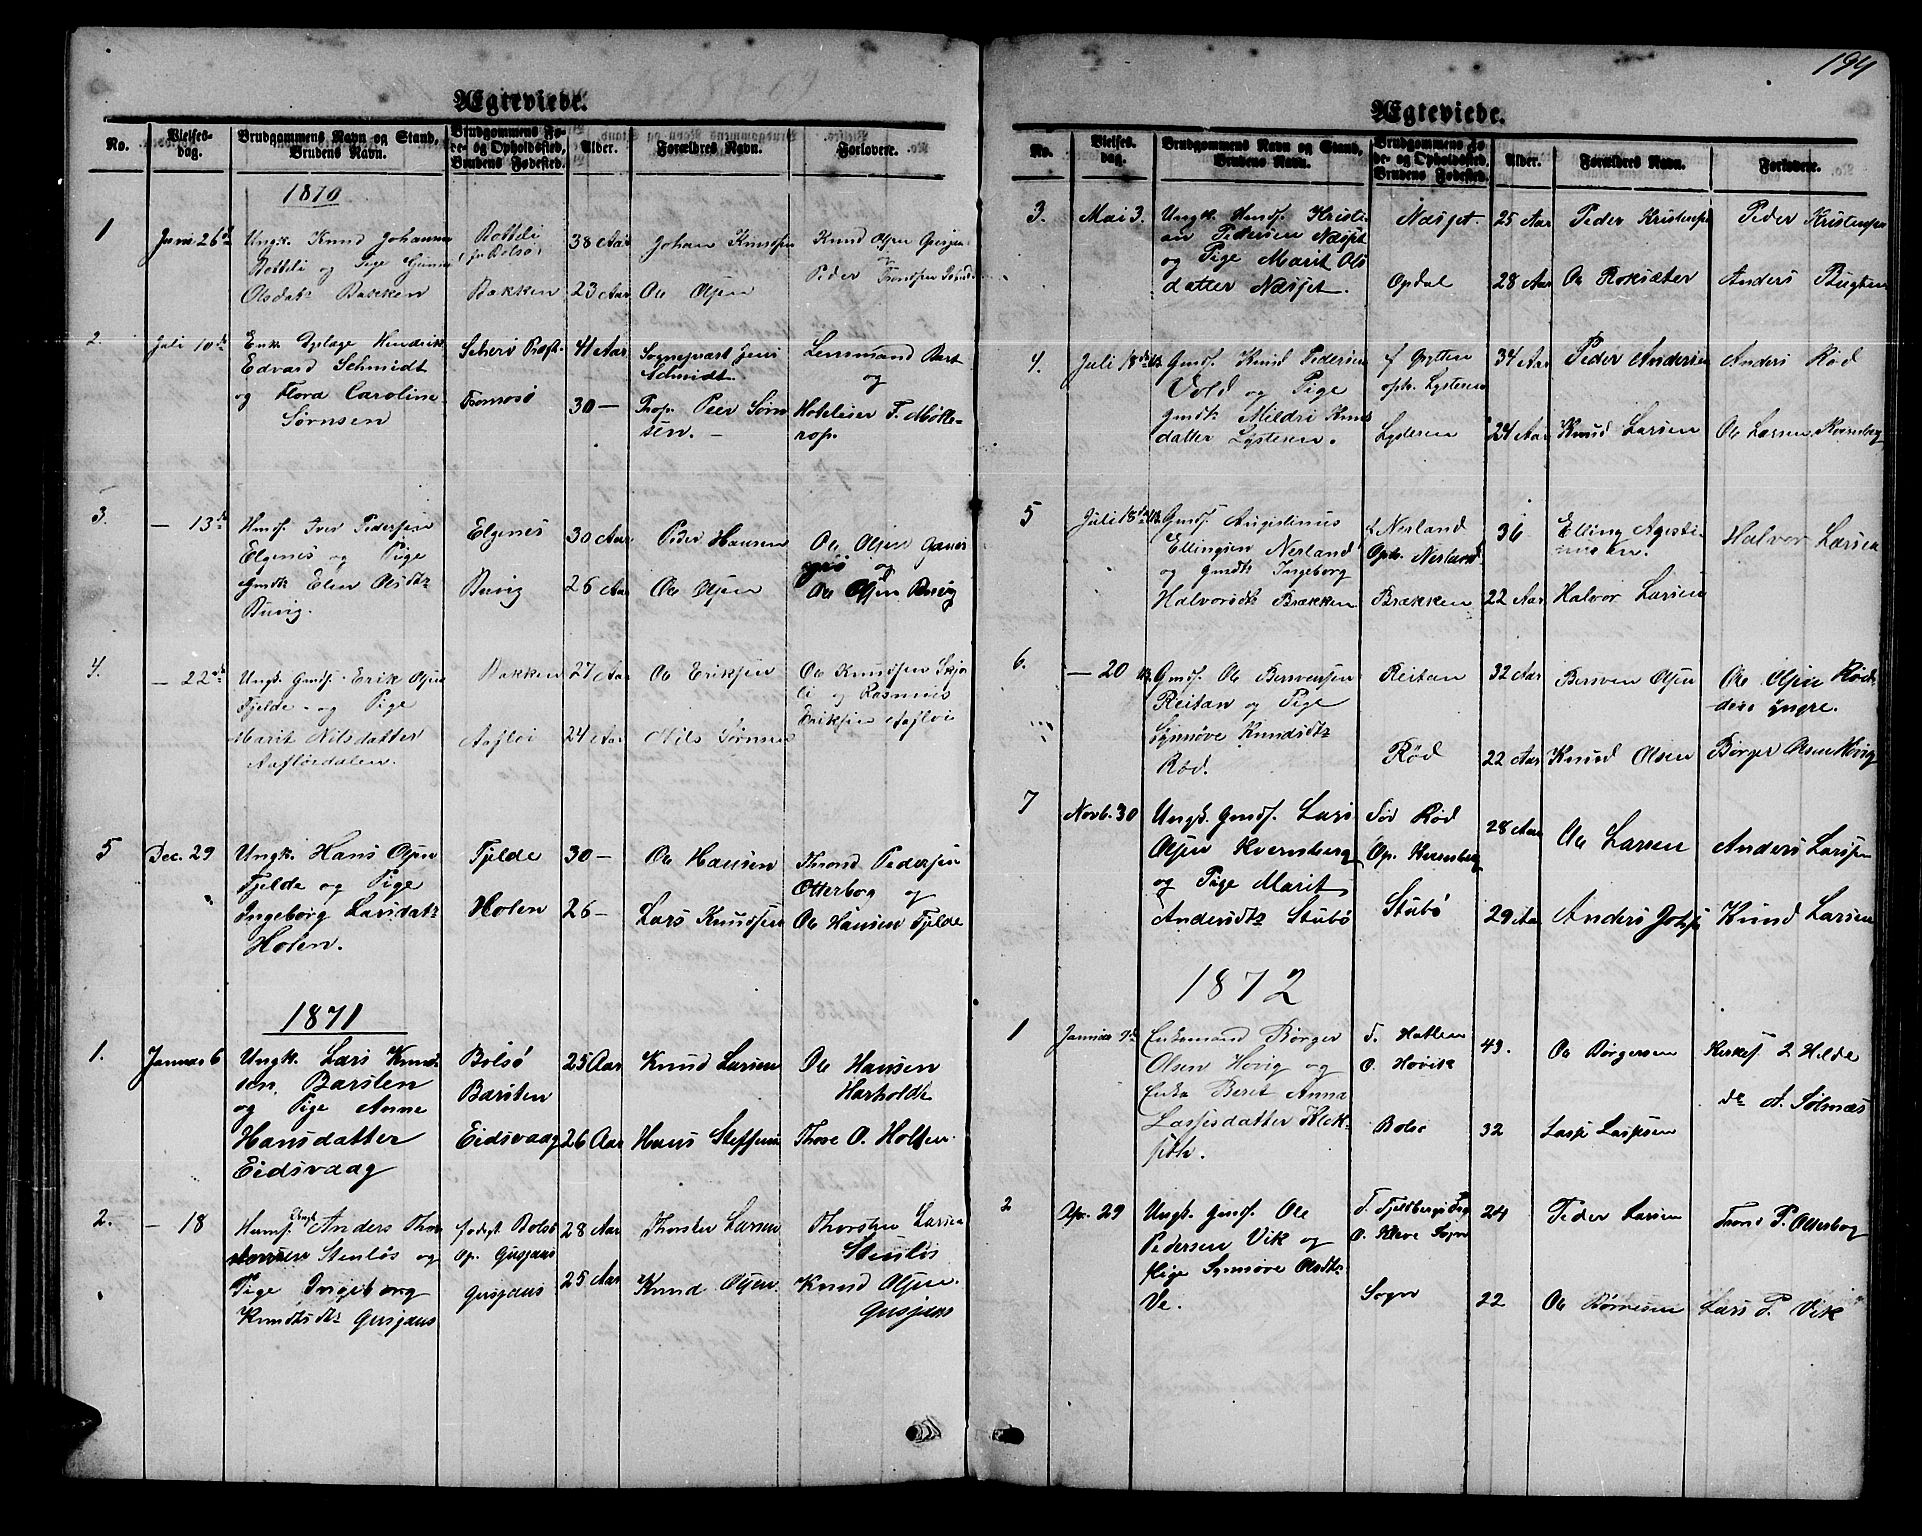 Ægteviede.
No.
Vielses-
dag.
Brudgommens Navn og Stand,
Brudens Navn.
Brudgommens Fø-
de- og Opholdssted,
Brudens Fødested.
Alder.
Forældres Navn.
Forlovere.
1870
1
Juni 26de
Ungk. Knud Johannes
Botteli og Pige Gunn
Olsdatr Bakken
Botteli
Bolsø
Bakken
38 Aar
23 Aar
Johan Knudsen
Ole Olsen
Knud Olsen Gusjaas
Peder
2.
Juli 10de
Enk. Hendrik
Edvard Schmidt
og Flora Caroline
Sørnsen
Tromsø
41 Aar
30 —
Sogneprest Jens
Schmidt.
Prop. Peer Sørn
sen. —
Lensmand
og
Hotelieier F. Møller-
rop.
3.
— 13de
Huusf. Iver Pedersen
Elgenes og Pige
Gmdtr Elen Olsdtr
Buvig.
Elgenes
Buvig
30 Aar
26 Aar
Peder Hansen
Ole Olsen
Ole Olsen
og
Ole Olsen Buvig
4.
— 22de
Ungk. Gmdf. Erik Olsen
Fjelde - og Pige
Marit Nilsdatter
Aafløidalen.
Bakken
Aafløi
27 Aar
24 Aar
Ole Eriksen
Nils Sørnnes
Ole Knudsen Skjø
li og Rasmus
Eriksen Aafløi
5
Dec. 29
Ungk. Hans Olsen
Fjelde og Pige
Ingeborg Larsdatr
Holen.
Fjelde
Holen
30 —
26 —
Ole Hansen
Lars Knudsen
Thrond Pedersen
Otterbog og
Ole Hansen Fjelde
1871
1.
Januar 6
Ungk. Lars Knud
sen Barsten
og Pige Anne
Hansdatter
Eidsvaag
Bolsø
Barsten
Eidsvaag
25 Aar
26 Aar
Knud Larsen
Hans Steffensen
Ole Hansen
Harholdt
Thore O. Holten.
2.
— 18
Huusf. Ungk Anders Thor
stensen Stenløs og
Pige Ingeborg
Knudtsdtr Gusjaas
fødegt Bolsø
Op. Gusjaas
Gusjaas
28 Aar
25 Aar
Thorsten Larsen
Knud Olsen.
Thorsten Larsen
Stenløs
Knud Olsen.
Gusjaas
194
Ægteviede.
No.
Vielses-
dag.
Brudgommens Navn og Stand,
Brudens Navn.
Brudgommens Fø-
de- og Opholdssted,
Brudens Fødested.
Alder.
Forældres Navn.
Forlovere.
3.
Mai 3.
Ungk. Huusf. Kristi-
an Pedersen Næsjet
og Pige Marit Ols
datter Næsjet.
Næsjet
Opdal
25 Aar
28 Aar
Peder Kristensen
Ole Roksæter
Peder Kristensen
Anders Bugten
4.
Juli 18de
Gmdf. Knud Pedersen
Vold og Pige
Gmdtr Mildri Knus
datter Lystesen.
f Gytten
oph. Lystesen
Lystesen
34 Aar
24 Aar
Peder Andersen
Knud Larsen
Anders Rød
Ole Larsen Kvernberg
5
Juli 18de
Gmdf. Augistinus
Ellingsen Nerland
og Gmdtr Ingeborg
Halvorsdtr Brækken
f Nerland
Oph. Nerland
Brækken
36
22 Aar
Elling Agesti-
nussen.
Halvor Larsen
Halvor Larsen
6.
— 20
Gmdf. Ole Bersvensen
Reitan og Pige
Synnøve Knudsdtr
Rød.
Reitan
Rød
32 Aar
22 Aar
Bersven Olsen
Knud Olsen
Ole Olsen Rød
yngre.
Børger Olsen Høvig
7
Novb. 30
Ungk. Gmdf. Lars
Olsen Kvernberg
og Pige Marit
Andersdtr Stubø
Fød Rød
Op. Kvernberg
Stubø
28 Aar
29 Aar
Ole Larsen
Anders Johs
Anders Larsen
Knud Larsen
1872
1
Januar 9de
Enkemand Børger
Olsen Høvig og
Enke Beret Anna
Lassesdatter Klek-
F. Hatlen
O. Høvik
Bolsø
49.
32
Ole Børgersen
Kirkes. L Hilde
do A. Solnæs
2
Apr. 29
Ungk. Gmdf. Ole
Pedersen Vik og
Pige Synnøve Olsdtr
Ve.
O. Kleve Sogn
Sogn
24
22
Peder Larsen
Ole
Trond P. Otterbog
Lars P. Vik